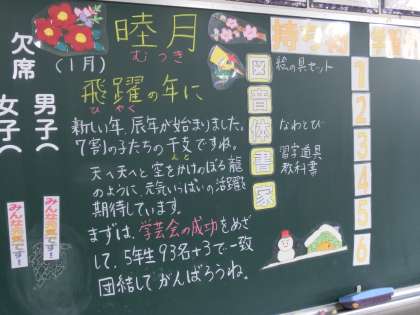 睦月
むつき
(1月)
飛躍の年に
ひやく
新しい年、辰年が始まりました。
7割の子たちの干支ですね。
えと
天へ天へと空をかけのぼる龍
のように元気いっぱいの活躍を
期待しています。
まずは、学芸会の成功をめざ
して、5年生93名+3で一致
団結してがんばろうね。
欠席
男子(
女子(
みんな元気です!
みんな元気です!
図
音
体
書
家
絵の具セット
なわとび
習字道具
教科書
1
2
3
4
5
6